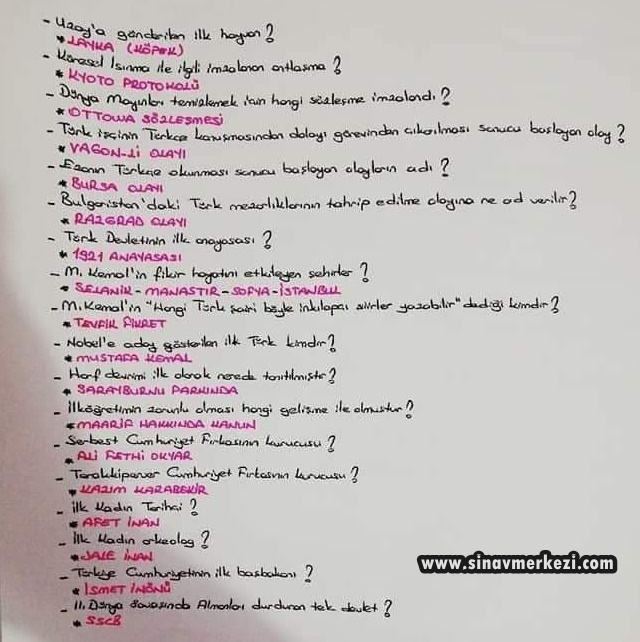 - Uzay'a gönderilen ilk hayvan?
* LAYKA (KÖPEK)
- Küresel Isınma ile ilgili imzalanan antlaşma?
* KYOTO PROTOKOLÜ
- Dünya Mayınları temizlemek için hangi sözleşme imzalandı?
* OTTOWA SÖZLEŞMESİ
- Türk işçinin Türkçe konuşmasından dolayı görevinden çıkarılması sonucu başlayan olay?
* VAGON-Lİ OLAYI
- Ezanın Türkçe okunması sonucu başlayan olayların adı?
* BURSA OLAYI
- Bulgaristan'daki Türk mezarlıklarının tahrip edilme olayına ne ad verilir?
* RAZGRAD OLAYI
- Türk Devletinin ilk anayasası?
* 1921 ANAYASASI
- M. Kemal'in fikir hayatını etkileyen şehirler?
* SELANİK - MANASTIR - SOFYA - İSTANBUL
- M. Kemal'in "Hangi Türk şairi böyle inkılapçı şiirler yazabilir" dediği kimdir?
* TEVFİK FİKRET
- Nobel'e aday gösterilen ilk Türk kimdir?
* MUSTAFA KEMAL
- Harf devrimi ilk olarak nerede tanıtılmıştır?
* SARAYBURNU PARKINDA
- İlköğretimin zorunlu olması hangi gelişme ile olmuştur?
* MAARİF HAKKINDA KANUN
- Serbest Cumhuriyet Fırkasının kurucusu?
* ALİ FETHİ OKYAR
- Terakkiperver Cumhuriyet Fırkasının kurucusu?
* KAZIM KARABEKİR
- İlk Kadın Tarihçi?
* AFET İNAN
- İlk Kadın arkeolog?
* JALE İNAN
- Türkiye Cumhuriyetinin ilk başbakanı?
* İSMET İNÖNÜ
- II. Dünya Savaşında Almanları durduran tek devlet?
* SSCB
www.sinavmerkezi.com